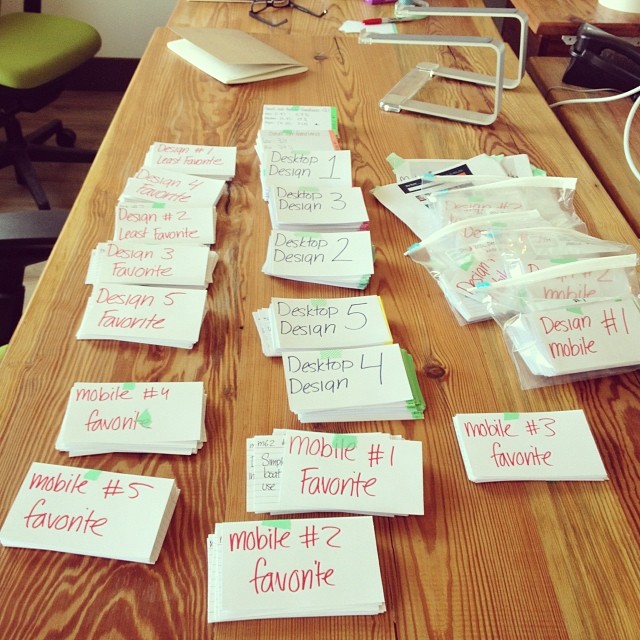 Design #1
Least Favorite
Design 4
Favorite
Design #2
Least Favorite
Design 3
Favorite
Design 5
Favorite
mobile #4
favorite
mobile #5
favorite
Desktop 1
Design
Desktop 3
Design
Desktop 2
Design
Desktop 5
Design
Desktop 4
Design
mobile #1
Favorite
mobile #2
favorite
mobile #3
favorite
Design #1
mobile
mobile